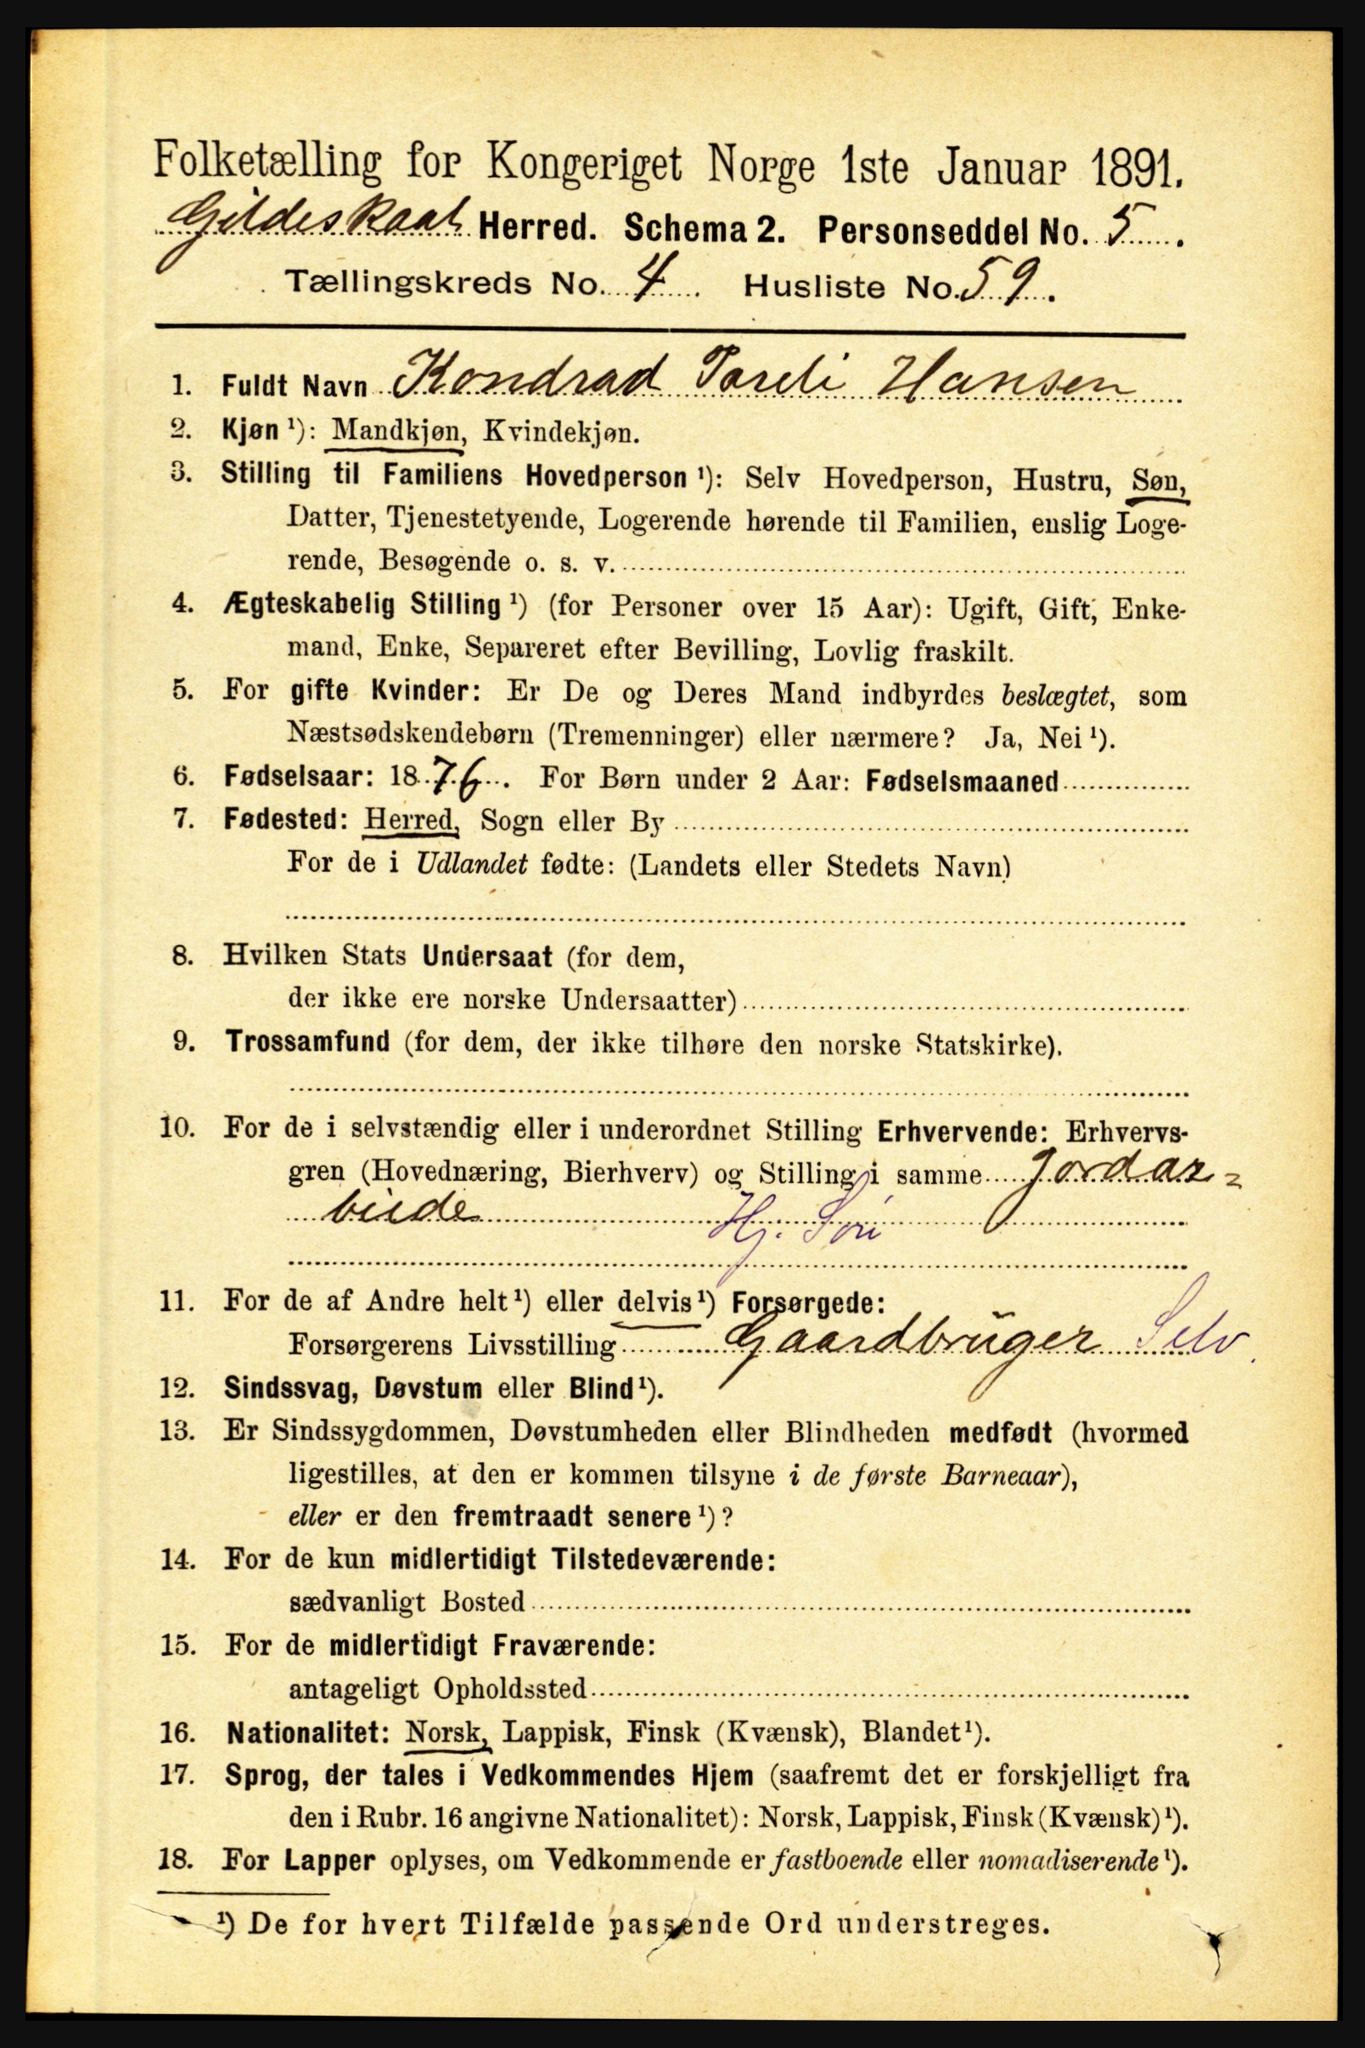 Folketælling for Kongeriget Norge 1ste Januar 1891.
Gildeskaal Herred. Schema 2. Personseddel No. 5.
Tællingskreds No. 4. Husliste No. 59.
1. Fuldt Navn Kondrad Pareli Hansen
2. Kjøn ¹): Mandkjøn, Kvindekjøn.
3. Stilling til Familiens Hovedperson ¹): Selv Hovedperson, Hustru, Søn,
Datter, Tjenestetyende, Logerende hørende til Familien, enslig Loge-
rende, Besøgende o. s. v.
4. Ægteskabelig Stilling ¹) (for Personer over 15 Aar): Ugift, Gift, Enke-
mand, Enke, Separeret efter Bevilling, Lovlig fraskilt.
5. For gifte Kvinder: Er De og Deres Mand indbyrdes beslægtet, som
Næstsødskendebørn (Tremenninger) eller nærmere? Ja, Nei ¹).
6. Fødselsaar: 1876. For Børn under 2 Aar: Fødselsmaaned
7. Fødested: Herred, Sogn eller By
For de i Udlandet fødte: (Landets eller Stedets Navn)
8. Hvilken Stats Undersaat (for dem,
der ikke ere norske Undersaatter)
9. Trossamfund (for dem, der ikke tilhøre den norske Statskirke).
10. For de i selvstændig eller i underordnet Stilling Erhvervende: Erhvervs-
gren (Hovednæring, Bierhverv) og Stilling i samme Jordar-
beide Hj. Søn
11. For de af Andre helt ¹) eller delvis ¹) Forsørgede:
Forsørgerens Livsstilling Gaardbruger Selv
12. Sindssvag, Døvstum eller Blind ¹).
13. Er Sindssygdommen, Døvstumheden eller Blindheden medfødt (hvormed
ligestilles, at den er kommen tilsyne i de første Barneaar),
eller er den fremtraadt senere ¹)?
14. For de kun midlertidigt Tilstedeværende:
sædvanligt Bosted
15. For de midlertidigt Fraværende:
antageligt Opholdssted
16. Nationalitet: Norsk, Lappisk, Finsk (Kvænsk), Blandet ¹).
17. Sprog, der tales i Vedkommendes Hjem (saafremt det er forskjelligt fra
den i Rubr. 16 angivne Nationalitet): Norsk, Lappisk, Finsk (Kvænsk) ¹).
18. For Lapper oplyses, om Vedkommende er fastboende eller nomadiserende ¹).
¹) De for hvert Tilfælde passende Ord understreges.